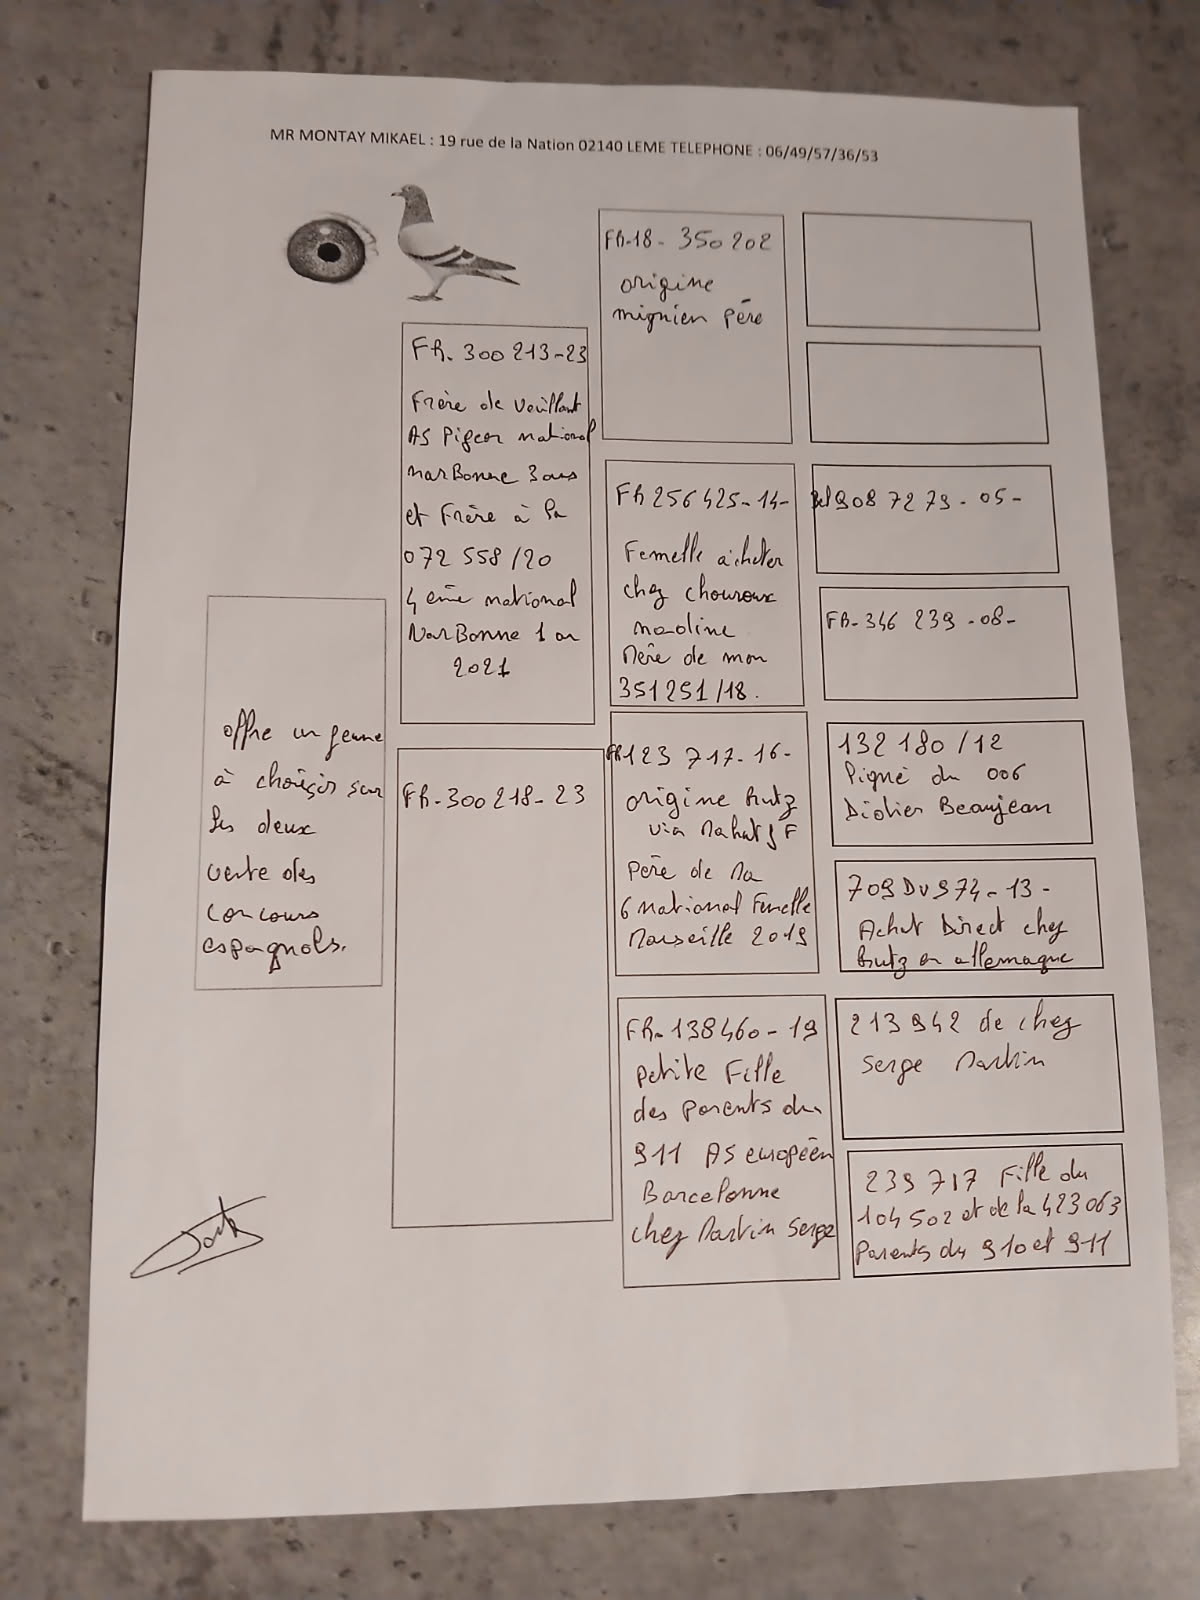 MR MONTAY MIKAEL : 19 rue de la Nation 02140 LEME TELEPHONE : 06/49/57/36/53
offre un jeune
à choisir sur
les deux
vente des
concours
espagnols.
FR. 300 213-23
Frère de Vouillant
AS Pigeon national
narBonne 3 ans
et Frère à la
072 558/20
4 eme national
NarBonne 1 an
2021
FR-300 218-23
FR-18- 350 202
origine
mignien Père
FR 256 425-14-
Femelle acheter
chez chouroux
nadine
Mère de mon
351 251/18.
FR 123 717-16-
origine Rutz
via Mahut J F
Père de Ma
6 National Femelle
Marseille 2019
FR-138460-19
petite Fille
des parents du
911 AS européen
Barcelonne
chez Martin Serge
Bel 908 72 79-05-
FR-346 239-08-
132 180/12
Pigne du 006
Didier Beaujean
709 DV 974-13-
Achat Direct chez
Rutz en allemagne
213 942 de chez
Serge Martin
239 717 Fille du
104 502 et de la 423 063
Parents du 910 et 911